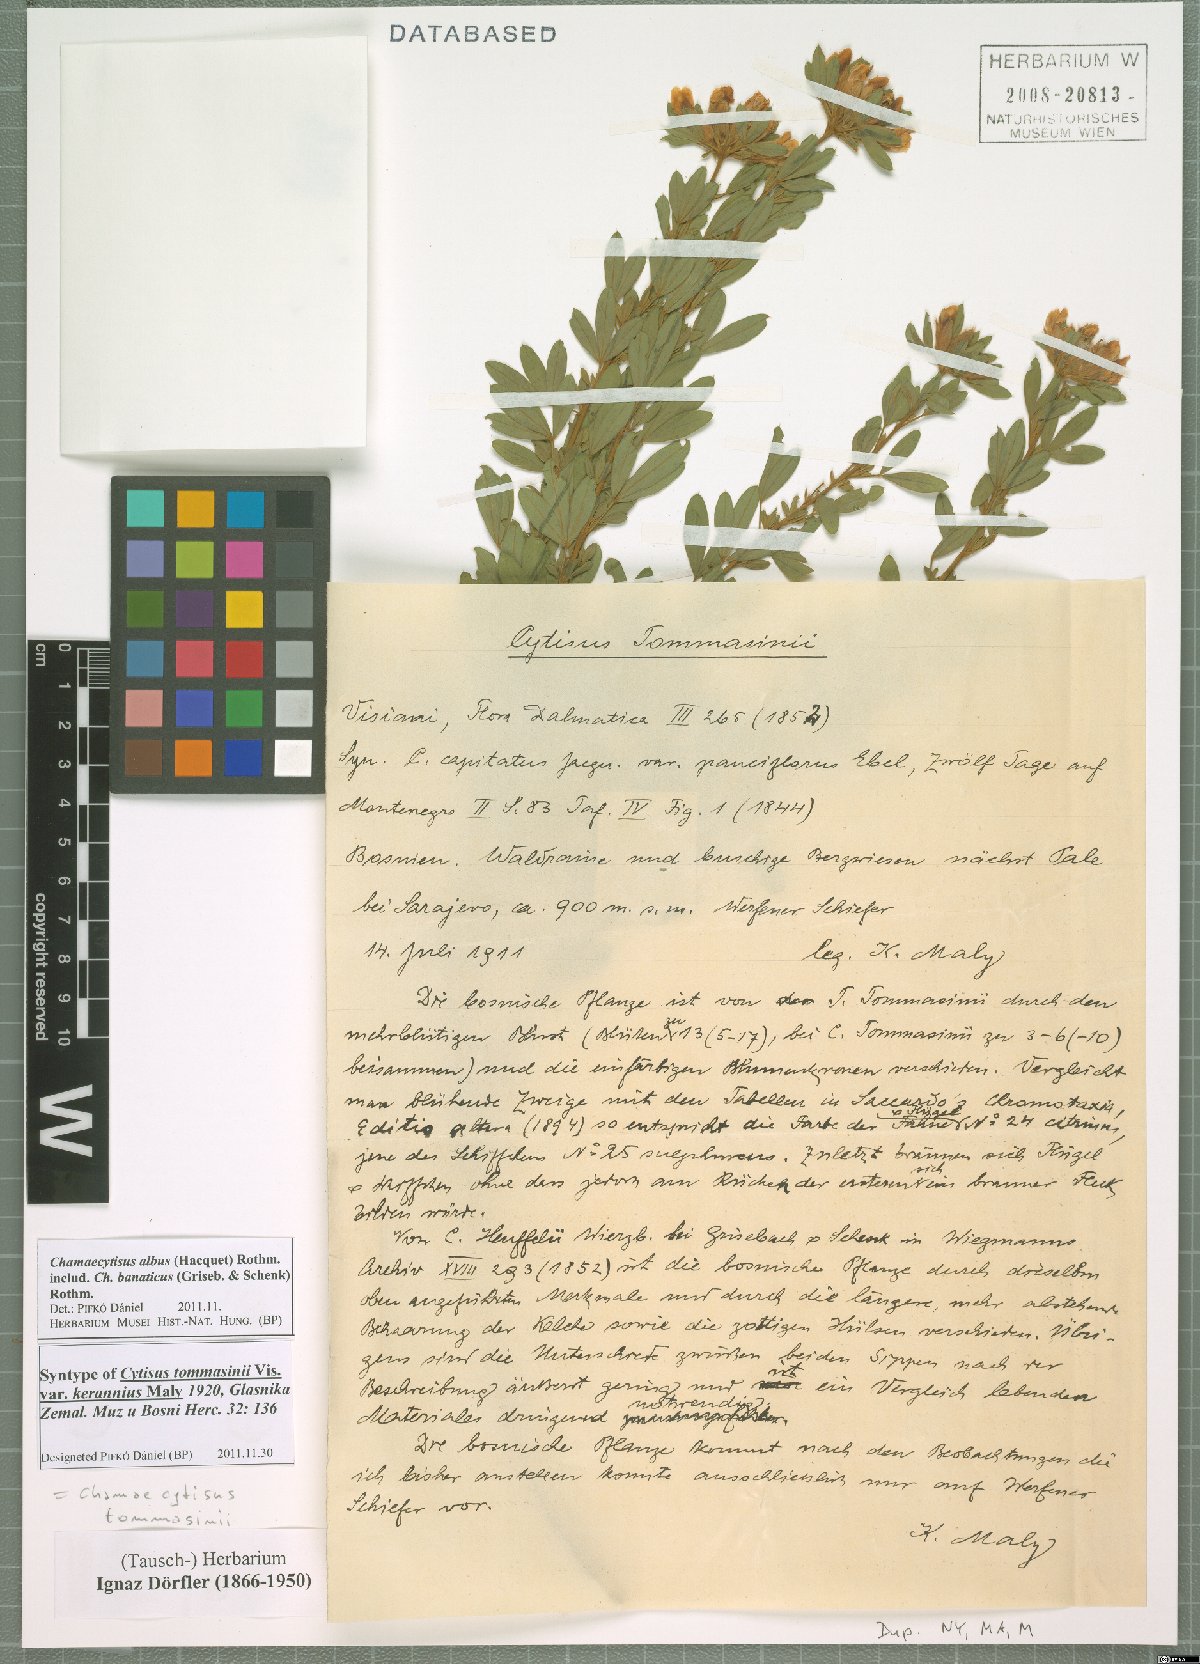 DATABASED
HERBARIUM W
2008-20813-
NATURHISTORISCHES
MUSEUM WIEN
Cytisus Tommasinii
Visiani, Flora Dalmatica III 265 (1852)
Syn. C. capitatus Jacqu. var. pauciflorus Ebel, Zwölf Tage auf
Montenegro II S. 83 Taf. IV Fig. 1 (1844)
Bosnien. Waldraine und buschige Bergwiesen nächst Pale
bei Sarajevo, ca. 900 m. s. m. Werfener Schiefer
14. Juli 1911 leg. K. Maly
Die bosnische Pflanze ist von T. Tommasinii durch den
mehrblütigen (Blüten zu 13 (5-17), bei C. Tommasinii zu 3-6 (-10)
beisammen) und die einfärbigen Blumenkronen verschieden. Vergleicht
man blühende Zweige mit den Tabellen in Saccardo's Chromotaxia,
Editio altera (1894) so entspricht die Farbe der Fahne & Flügel No 24 citrinus,
jene des Schiffchens No 25 sulphureus. Zuletzt bräunen sich Flügel
& Schiffchen ohne dass jedoch am Rücken der ersteren sich ein brauner Fleck
bilden würde.
Von C. Heuffelii Wierzb. bei Grisebach & Schenk in Wiegmanns
Archiv XVIII 293 (1852) ist die bosnische Pflanze durch dieselben
oben angeführten Merkmale und durch die längere, mehr abstehende
Behaarung der Kelche sowie die zottigen Hülsen verschieden. Übri-
gens sind die Unterschiede zwischen beiden Sippen nach der
Beschreibung äußerst gering und ist ein Vergleich lebenden
Materiales dringend notwendig.
Die bosnische Pflanze kommt nach den Beobachtungen die
ich bisher anstellen konnte ausschließlich nur auf Werfener
Schiefer vor.
K. Maly
cm 0 1 2 3 4 5 6 7 8 9 10
copyright reserved
W
Chamaecytisus albus (Hacquet) Rothm.
includ. Ch. banaticus (Griseb. & Schenk)
Rothm.
Det.: PIFKÓ Dániel 2011.11.
HERBARIUM MUSEI HIST.-NAT. HUNG. (BP)
Syntype of Cytisus tommasinii Vis.
var. kerannius Maly 1920, Glasnika
Zemal. Muz u Bosni Herc. 32: 136
Designeted PIFKÓ Dániel (BP) 2011.11.30
= Chamaecytisus
tommasinii
(Tausch-) Herbarium
Ignaz Dörfler (1866-1950)
Dup. NY, MA, M